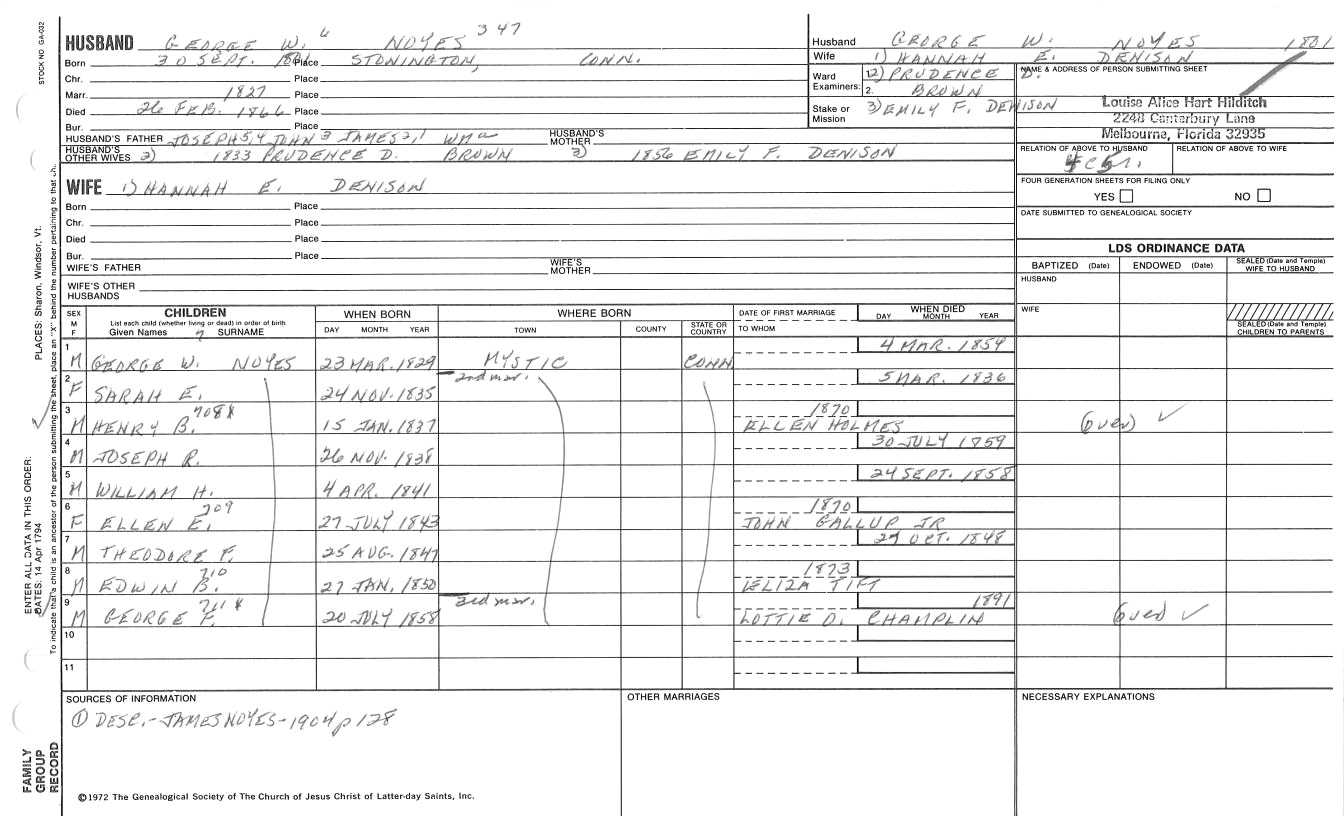 STOCK NO GA-032
HUSBAND GEORGE W. 6 NOYES 347
Born 30 SEPT. 1801 Place STONINGTON, CONN.
Chr. Place
Marr. 1827 Place
Died 26 FEB. 1866 Place
Bur. Place
HUSBAND'S FATHER JOSEPH 5,4 JOHN 3 JAMES 2,1 WM HUSBAND'S MOTHER
HUSBAND'S OTHER WIVES 2) 1833 PRUDENCE D. BROWN 3) 1856 EMILY F. DENISON
Husband GEORGE W. NOYES 1801
Wife 1) HANNAH E. DENISON
Ward Examiners: 1. 2) PRUDENCE D.
2. BROWN
Stake or Mission 3) EMILY F. DENISON
NAME & ADDRESS OF PERSON SUBMITTING SHEET
Louise Alice Hart Hilditch
2248 Canterbury Lane
Melbourne, Florida 32935
RELATION OF ABOVE TO HUSBAND RELATION OF ABOVE TO WIFE
FOUR GENERATION SHEETS FOR FILING ONLY
YES NO
DATE SUBMITTED TO GENEALOGICAL SOCIETY
WIFE 1) HANNAH E. DENISON
Born Place
Chr. Place
Died Place
Bur. Place
WIFE'S FATHER WIFE'S MOTHER
WIFE'S OTHER HUSBANDS
LDS ORDINANCE DATA
BAPTIZED (Date) ENDOWED (Date) SEALED (Date and Temple) WIFE TO HUSBAND
HUSBAND
WIFE
SEALED (Date and Temple) CHILDREN TO PARENTS
SEX M F CHILDREN WHEN BORN WHERE BORN DATE OF FIRST MARRIAGE WHEN DIED
List each child (whether living or dead) in order of birth
Given Names 7 SURNAME DAY MONTH YEAR TOWN COUNTY STATE OR COUNTRY TO WHOM DAY MONTH YEAR
1 M GEORGE W. NOYES 23 MAR. 1829 MYSTIC CONN 4 MAR. 1854
2 F SARAH E. 24 NOV. 1835 2nd mar. 5 MAR. 1836
3 M HENRY B. 708X 15 JAN. 1837 1870 ELLEN HOLMES (over) ✓
4 M JOSEPH R. 26 NOV. 1838 30 JULY 1859
5 M WILLIAM H. 4 APR. 1841 24 SEPT. 1858
6 F ELLEN E. 709 27 JULY 1843 1870 JOHN GALLUP JR
7 M THEODORE F. 25 AUG. 1847 29 OCT. 1848
8 M EDWIN B. 710 27 JAN. 1850 1873 ELIZA TIFT
9 M GEORGE F. 711X 20 JULY 1858 3rd mar. 1891 LOTTIE D. CHAMPLIN (over) ✓
10
11
SOURCES OF INFORMATION OTHER MARRIAGES NECESSARY EXPLANATIONS
① DESC.-JAMES NOYES-1904 p 128
©1972 The Genealogical Society of The Church of Jesus Christ of Latter-day Saints, Inc.
ENTER ALL DATA IN THIS ORDER:
DATES: 14 Apr 1794 PLACES: Sharon, Windsor, Vt.
To indicate that a child is an ancestor of the person submitting the sheet, place an "X" behind the number pertaining to that
FAMILY GROUP RECORD